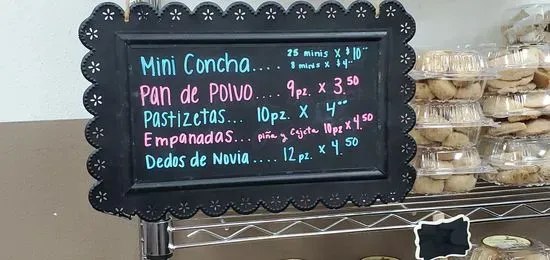 Mini Concha.... 25 minis x $10⁰⁰
8 minis x $4⁰⁰
Pan de Polvo.... 9pz. x 3.50
Pastizetas... 10pz. x 4⁰⁰
Empanadas... piña y Cajeta 10pz x 4.50
Dedos de Novia.... 12 pz. x 4.50